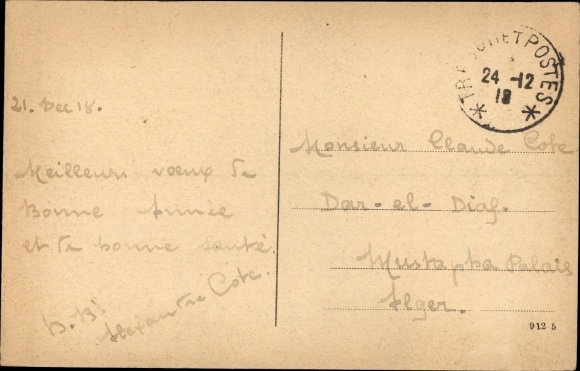 21. Dec 18.
Meilleurs vœux de
Bonne Année
et de bonne santé.
B.B!
Alexandre Cote.
TRÉSOR ET POSTES
24 -12
18
Monsieur Claude Cote
Dar-el-Diaf.
Mustapha Palais
Alger.
912 5